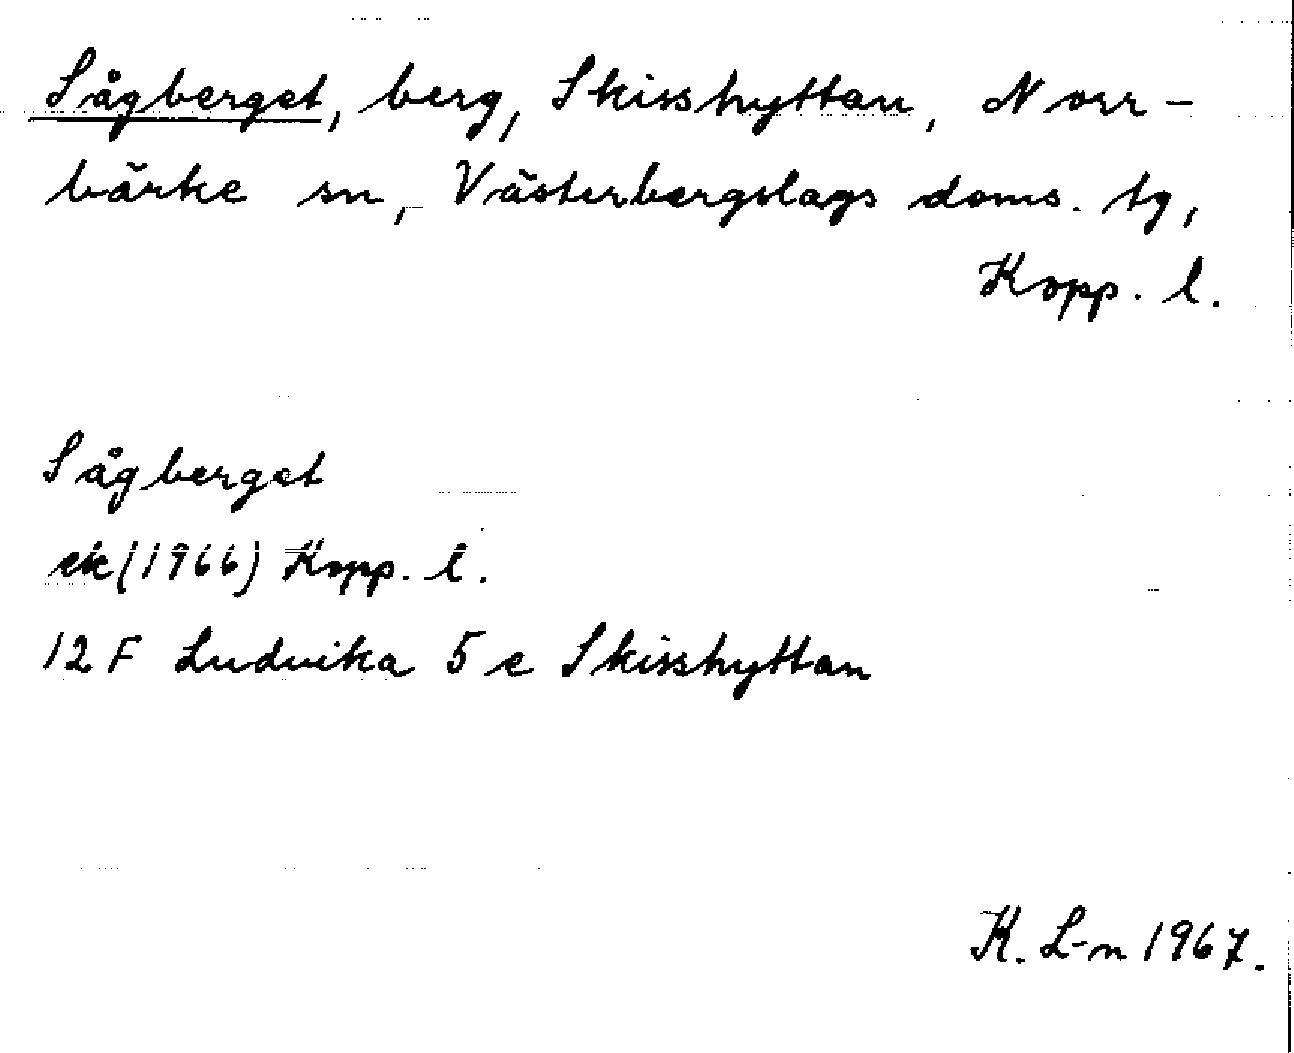 Sågberget, berg, Skisshyttan, Norr-
bärke sn, Västerbergslags doms. tg,
Kopp. l.
Sågberget
ek (1966) Kopp. l.
12 F Ludvika 5 e Skisshyttan
K. L-n 1967.